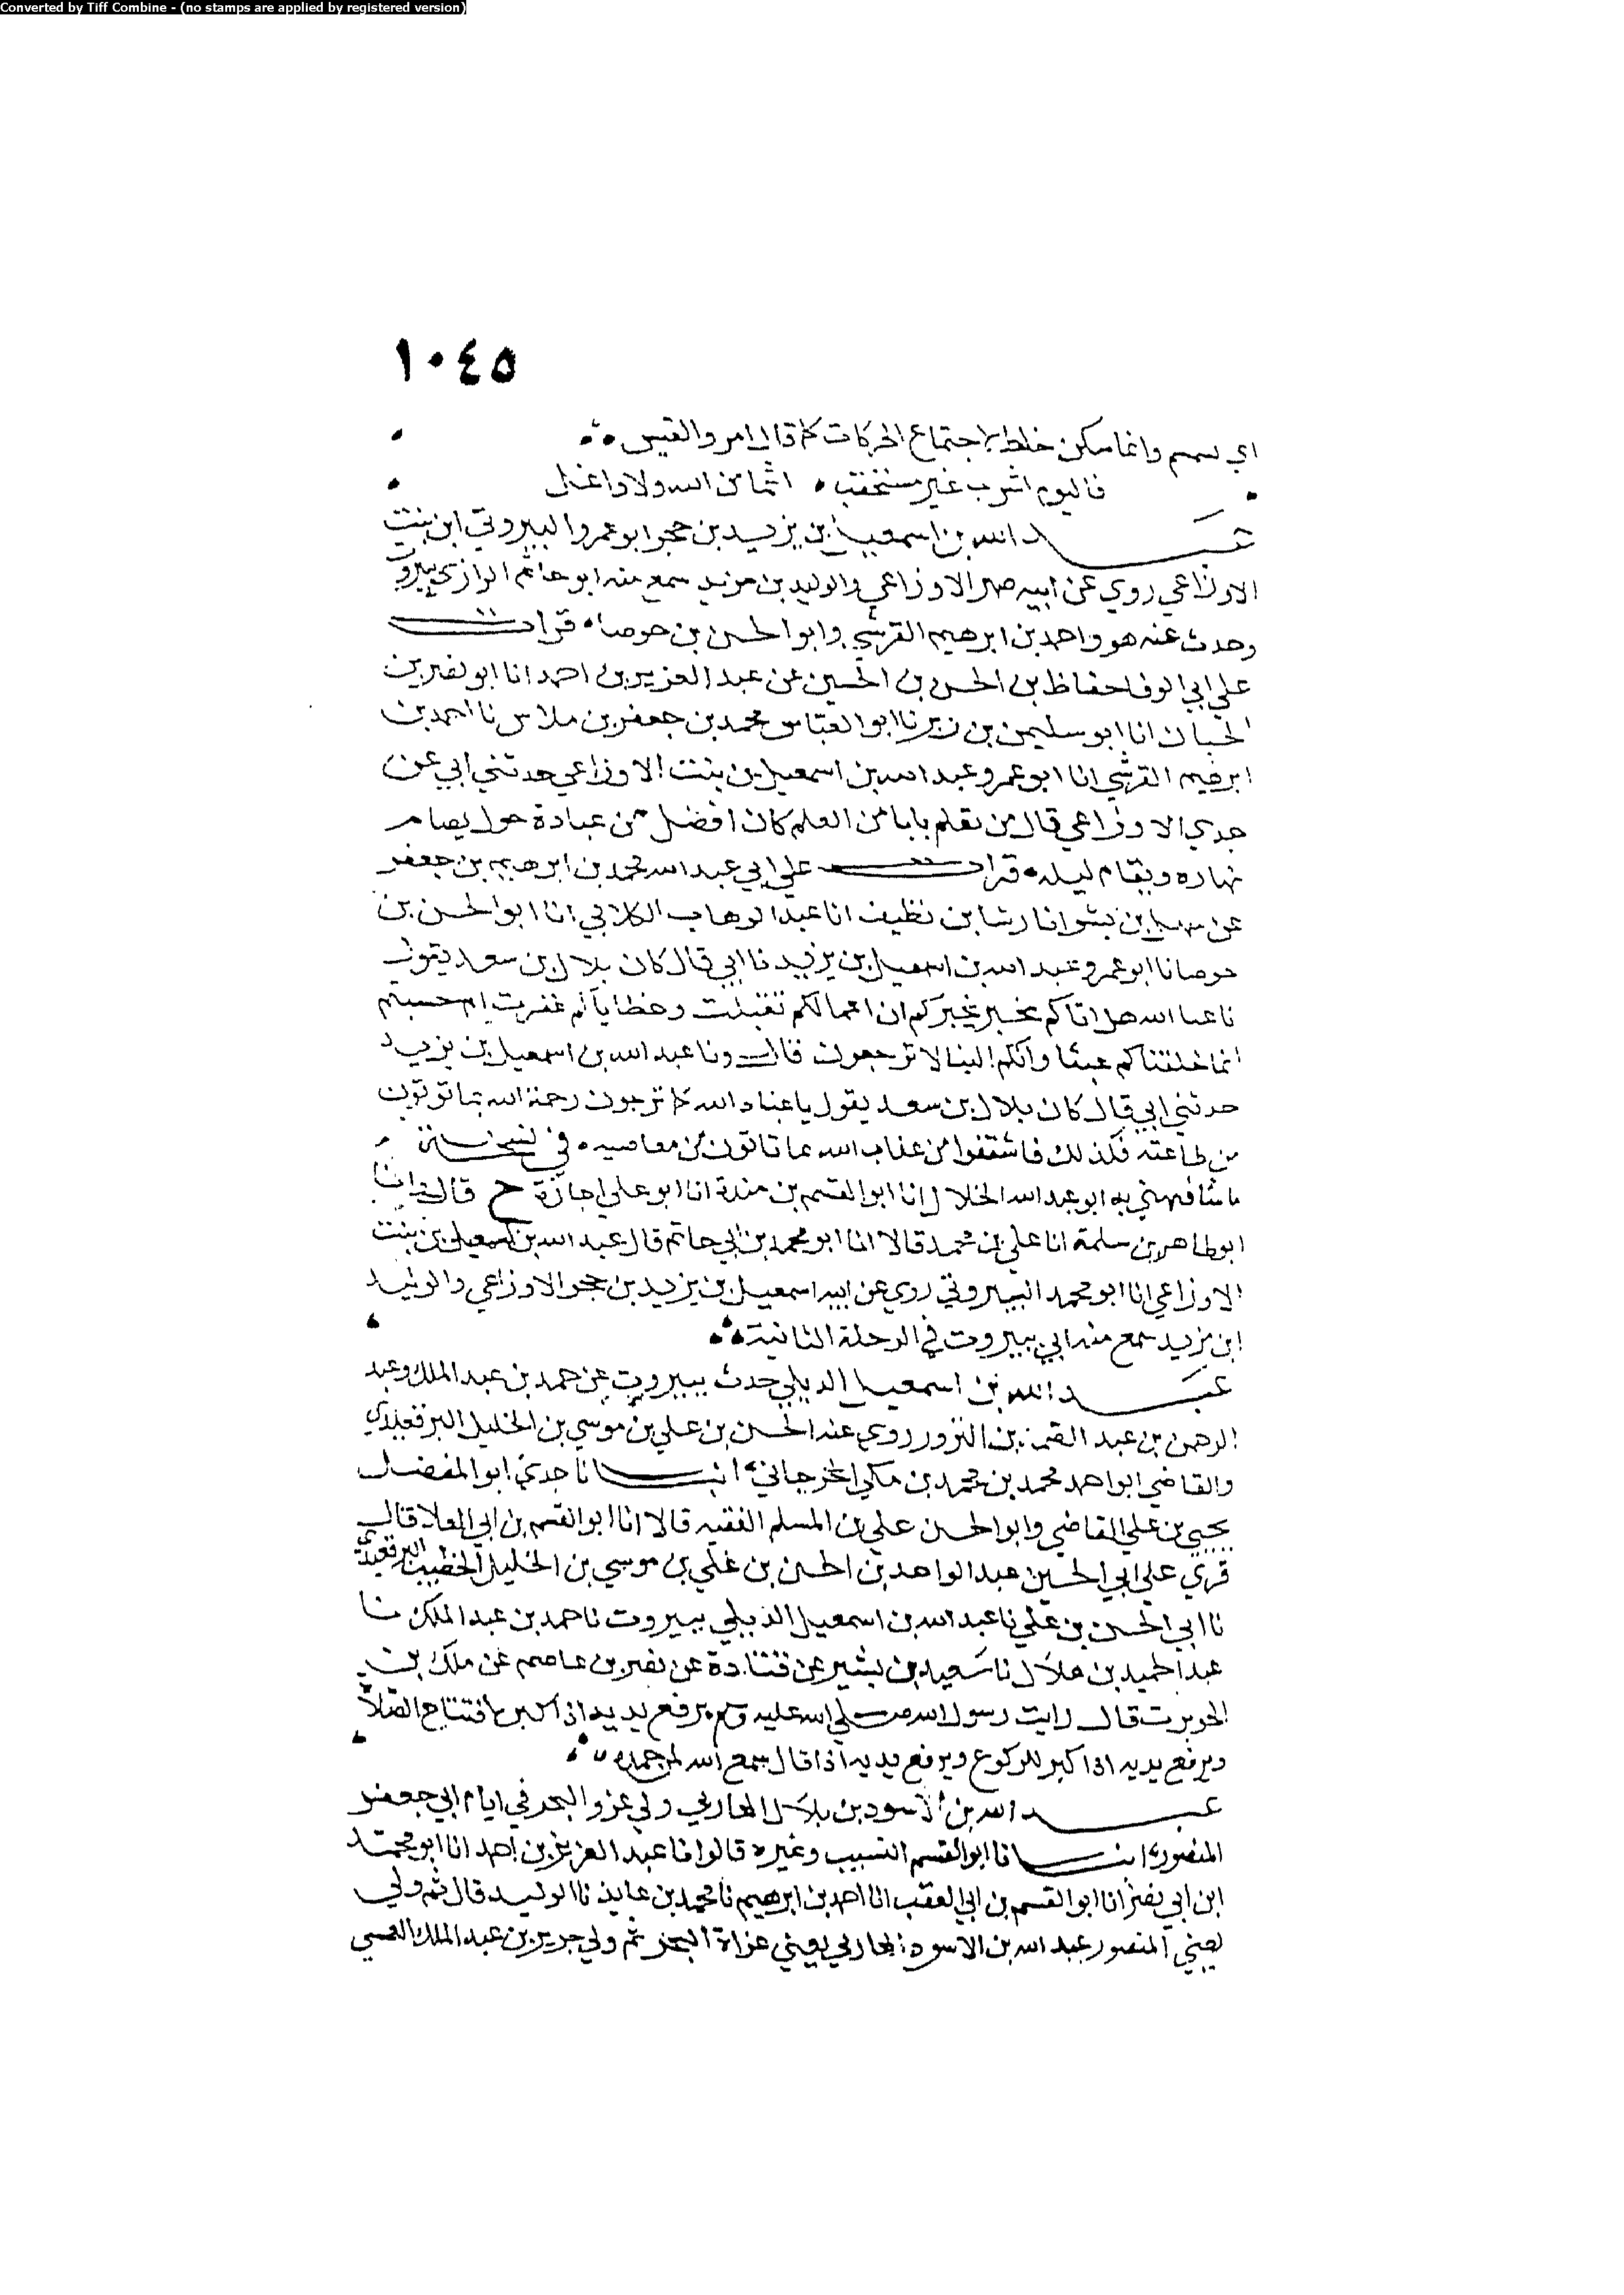 Converted by Tiff Combine - (no stamps are applied by registered version)
١٠٤٥
اي وانما سكن خلط لاجتماع الحركات كما قال امرو القيس
فاليوم اشرب غير مستحقب اثما من الله ولا واغل
عبد الله بن اسمعيل بن يزيد بن حجر ابو عمرو البيروتي ابن بنت
الاوزاعي روي عن ابيه صهر الاوزاعي والوليد بن مزيد سمع منه ابو حاتم الرازي ببيروت
وحدث عنه هو واحمد بن ابرهيم القرشي وابو الحسن بن جوصا قرات
علي ابي الوفا حفاظ بن الحسن بن الحسين عن عبد العزيز بن احمد انا ابو نصر بن
الجبان انا ابو سليمن بن زبر نا ابو العباس محمد بن جعفر بن ملاس نا احمد بن
ابرهيم القرشي انا ابو عمرو عبد الله بن اسمعيل بن بنت الاوزاعي حدثني ابي عن
جدي الاوزاعي قال من تعلم بابا من العلم كان افضل من عبادة حول يصام
نهاره ويقام ليله قرات علي ابي عبد الله محمد بن ابرهيم بن جعفر
عن سهل بن بشر انا رشا بن نظيف انا عبد الوهاب الكلابي انا ابو الحسن بن
جوصا نا ابو عمرو عبد الله بن اسمعيل بن يزيد نا ابي قال كان بلال بن سعد يقول
يا عباد الله هل اتاكم مخبر يخبركم ان اعمالكم تقبلت وخطاياكم غفرت ام حسبتم
انما خلقناكم عبثا وانكم الينا لا ترجعون قال ونا عبد الله بن اسمعيل بن يزيد
حدثني ابي قال كان بلال بن سعد يقول يا عباد الله كما ترجون رحمة الله بما توتون
من طاعته فكذلك فاشفقوا من عذاب الله مما تاتون من معاصيه في نسخة
ما شافهني به ابو عبد الله الخلال انا ابو القسم بن مندة انا ابو علي اجازة ح قال وانا
ابو طاهر بن سلمة انا علي بن محمد قالا انا ابو محمد بن ابي حاتم قال عبد الله بن اسمعيل بن بنت
الاوزاعي انا ابو محمد البيروتي روي عن ابيه اسمعيل بن يزيد بن حجر الاوزاعي والوليد
ابن مزيد سمع منه ابي ببيروت في الرحلة الثانية
عبد الله بن اسمعيل الديلي حدث ببيروت عن حمد بن عبد الملك وعبد
الرحمن بن عبد بن روي عنه الحسن بن علي بن موسي بن الخليل البرقعيدي
والقاضي ابو احمد محمد بن محمد بن مكي الجرجاني انبانا جدي ابو المفضل
يحيي بن علي القاضي وابو الحسن علي بن المسلم الفقيه قالا انا ابو القسم بن ابي العلا قال
قري علي ابي الحسين عبد الواحد بن الحسن بن علي بن موسي بن الخليل الخطيب البرقعيدي
نا ابي الحسن بن علي نا عبد الله بن اسمعيل الديبلي ببيروت نا حمد بن عبد الملك نا
عبد الحميد بن هلال نا سعيد بن بشير عن قتادة عن نصر بن عاصم عن ملك بن
الحويرث قال رايت رسول الله صلي الله عليه وسلم يرفع يديه اذا كبر لافتتاح الصلاة
ويرفع يديه اذا كبر للركوع ويرفع يديه اذا قال سمع الله لمن حمده
عبد الله بن الاسود بن بلال المحاربي ولي غزو البحر في ايام ابي جعفر
المنصور انبانا ابو القسم النسيب وغيره قالوا نا عبد العزيز بن احمد انا ابو محمد
ابن ابي نصر انا ابو القسم بن ابي العقب انا احمد بن ابرهيم نا محمد بن عايذ نا الوليد قال ثم ولي
يعني المنصور عبد الله بن الاسود المحاربي يعني غزاة البحر ثم ولي جرير بن عبد الملك